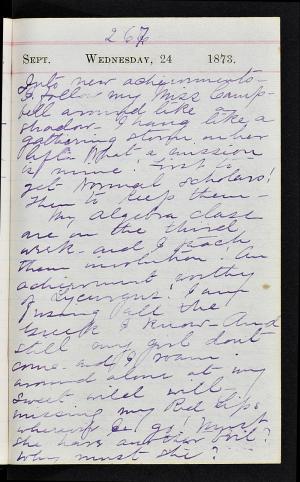 267
SEPT. WEDNESDAY, 24 1873.
Into new achievements-
I follow my Miss Camp-
bell around like a
shadow. I hang like a
gathering storm on her
left. What a mission
is mine! First to
get Normal scholars!
Then to keep them-
My algebra class
are on the third
week- and I teach
them involution! An
achievement worthy
of Lycurgus! I am
using all the
Greek I know- And
still my girl don't
come- and I roam
around alone at my
sweet wild will-
missing my Red lips
wherever I go! Must
she have another boil?
Why must she?